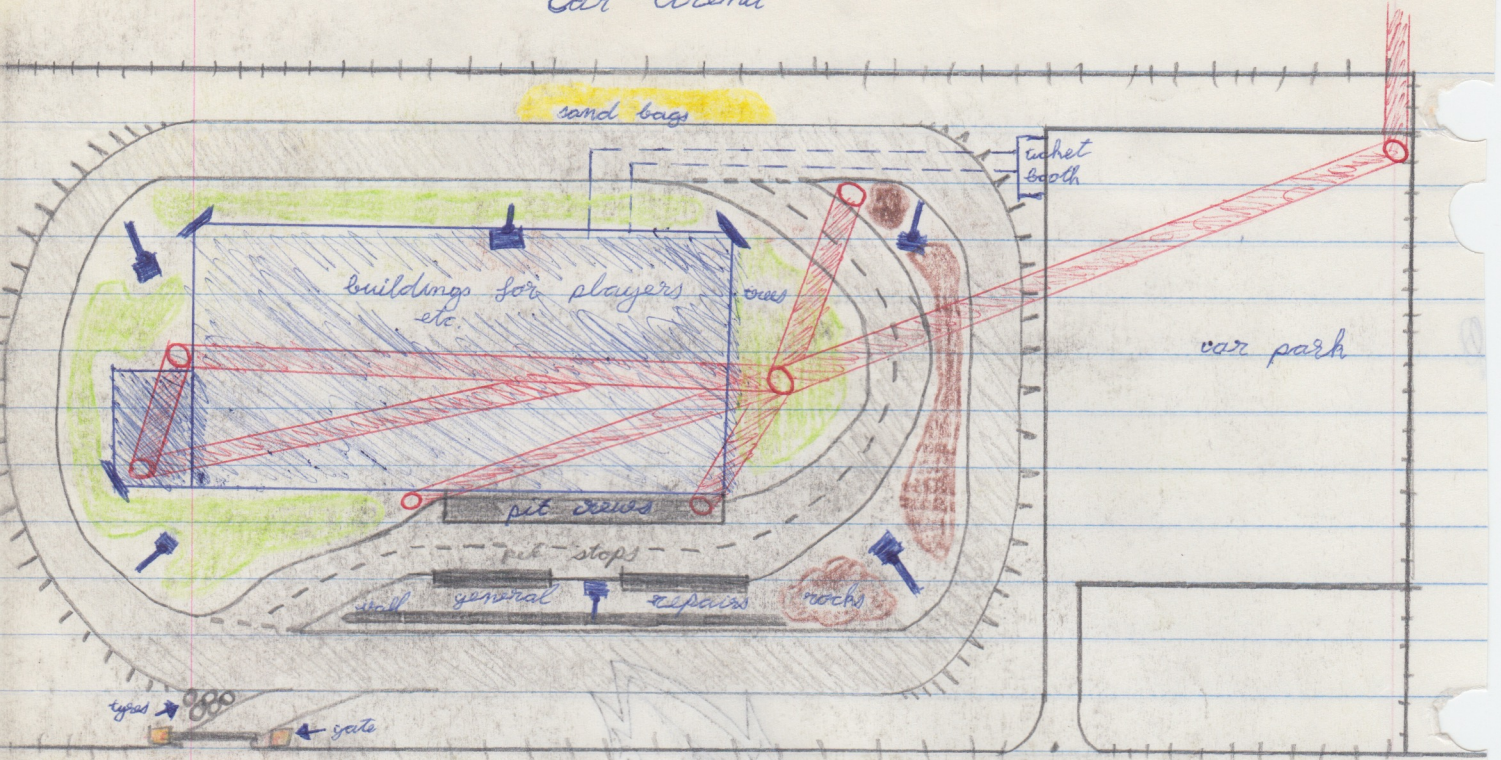 car arena
sand bags
ticket
booth
buildings for players
etc
trees
car park
pit crews
pit stops
general
repairs
wall
rocks
tyres
gate